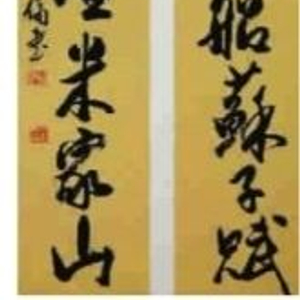 船蘇子賦
米家山
书